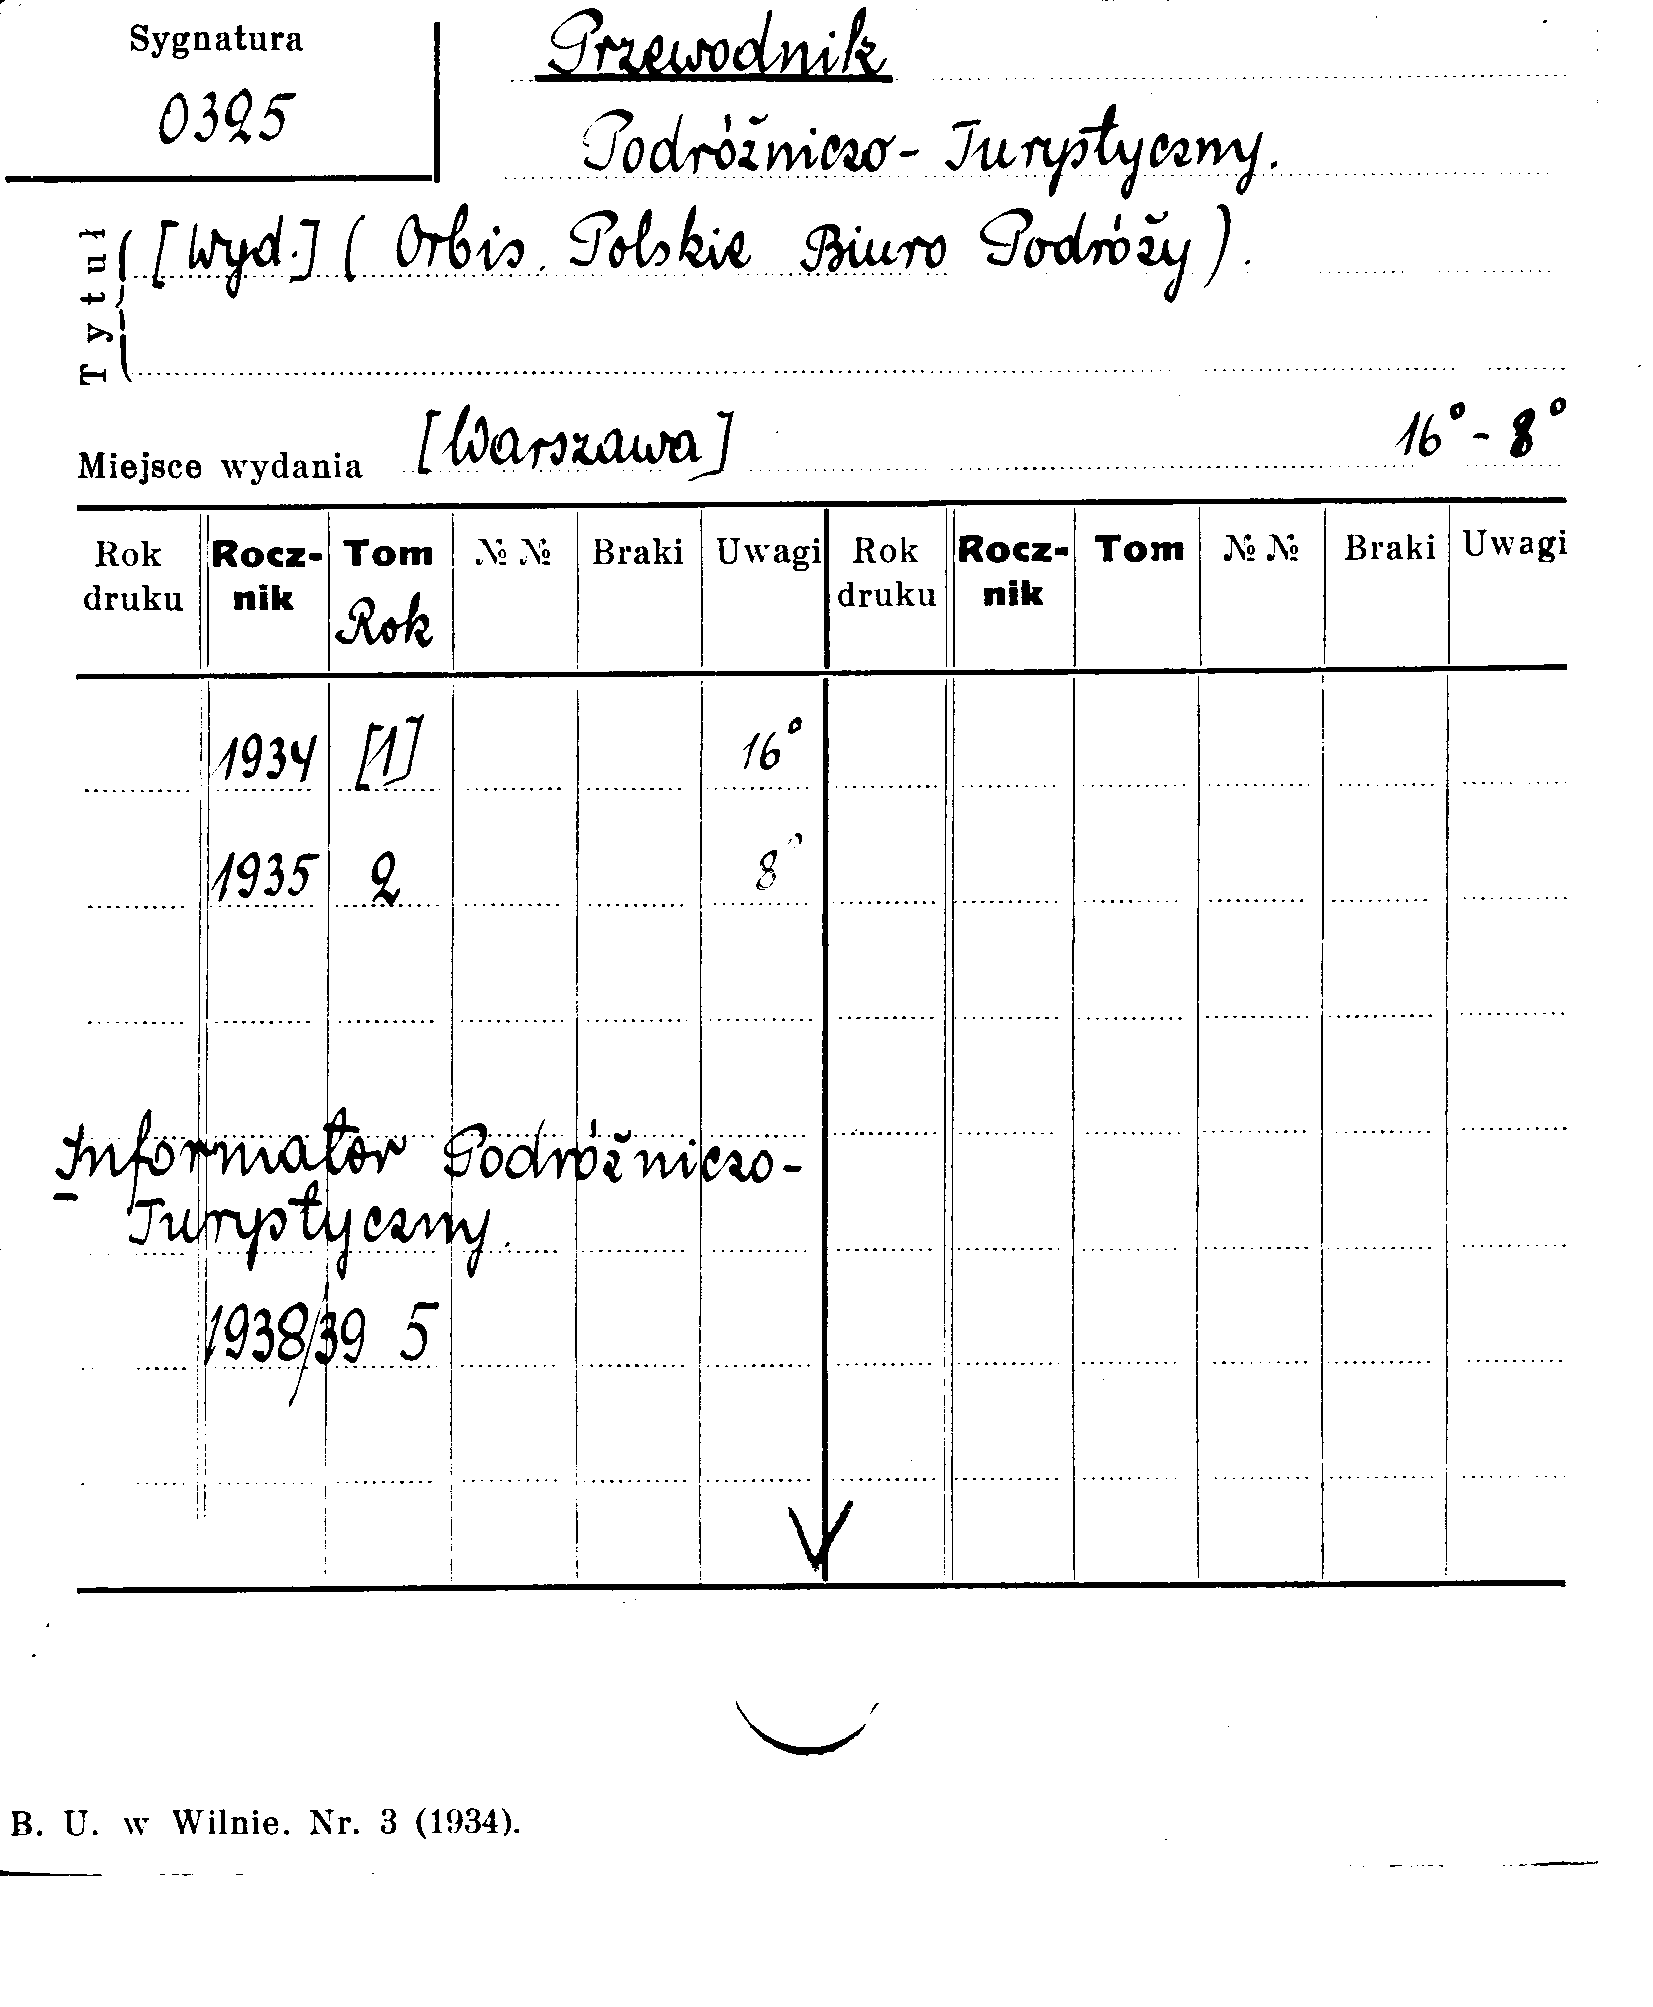 Sygnatura
0325
Przewodnik
Podróżniczo-Turystyczny.
Tytuł
[Wyd.] (Orbis. Polskie Biuro Podróży).
Miejsce wydania [Warszawa] 16° - 8°
Rok druku Rocz-nik Tom № № Braki Uwagi Rok druku Rocz-nik Tom № № Braki Uwagi
Rok
1934 [1] 16°
1935 2 8°
Informator Podróżniczo-
Turystyczny.
1938/39 5
B. U. w Wilnie. Nr. 3 (1934).